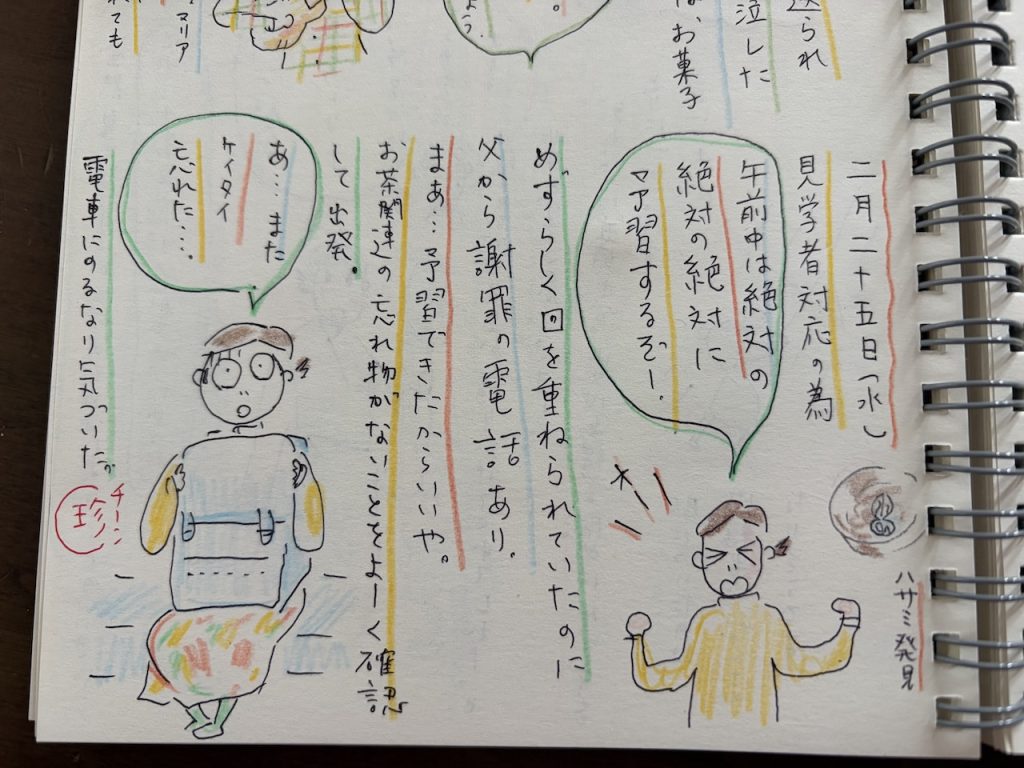 送られ
泣した
は、お菓子
よう.
。
マリア
れても
二月二十五日(水)
見学者対応の為
午前中は絶対の
絶対の絶対に
予習するぞー.
ハサミ発見
めずらしく回を重ねられていたのに
父から謝罪の電話あり.
まぁ…予習できたからいいや。
お茶関連の忘れ物がないことをよーく確認
して出発.
あ…また
ケイタイ
忘れた….
電車にのるなり気づいた。
チーン
珍